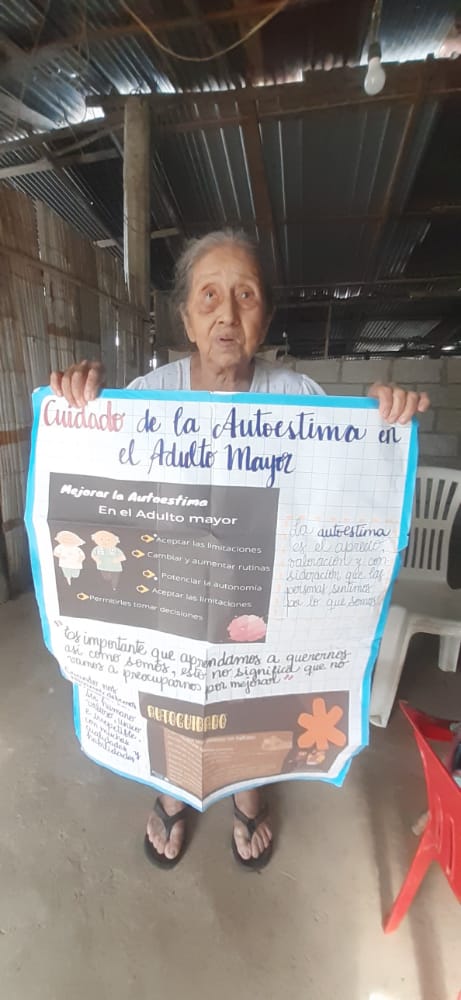 Cuidado de la Autoestima en
el Adulto Mayor
Mejorar la Autoestima
En el Adulto mayor
Aceptar las limitaciones
Cambiar y aumentar rutinas
Potenciar la autonomía
Aceptar las limitaciones
Permitirles tomar decisiones
La autoestima
es el aprecio,
valoración y con
sideración que las
personas sentimos
por lo que somos
"Es importante que aprendamos a querernos
así como somos, esto no significa que no
vamos a preocuparnos por mejorar"
ser humano
valioso, único
e irrepetible
con muchas
cualidades y
habilidades
AUTOCUIDADO